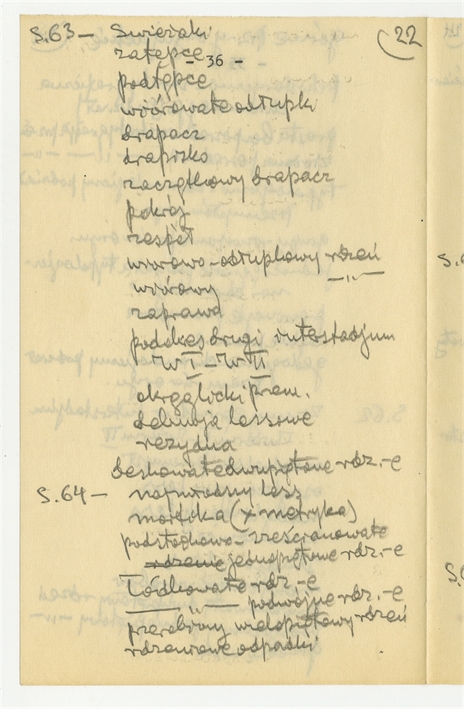 S.63 — Świeżaki (22
zatępce - 36 -
podtępce
wiórowate odłupki
drapacz
drapisko
zaczątkowy drapacz
pokrój
zespół
wiórowo-odłupkowy rdzeń
wiórowy —"—
zaprawa
podokres drugi interstadjum
W I – W II
okrgalicki przem.
deluwja lessowe
rezydua
deskowate dwupiętowe rdz.-e
S.64 — najmłodszy less
motyka (x metryka)
podstożkowo - sześcianowate
rdzenie jednopiętowe rdz-e
Łódkowate rdz-e
— " — podwójne rdz.-e
przerobiony wielopiętowy rdzeń
rdzeniowe odpadki